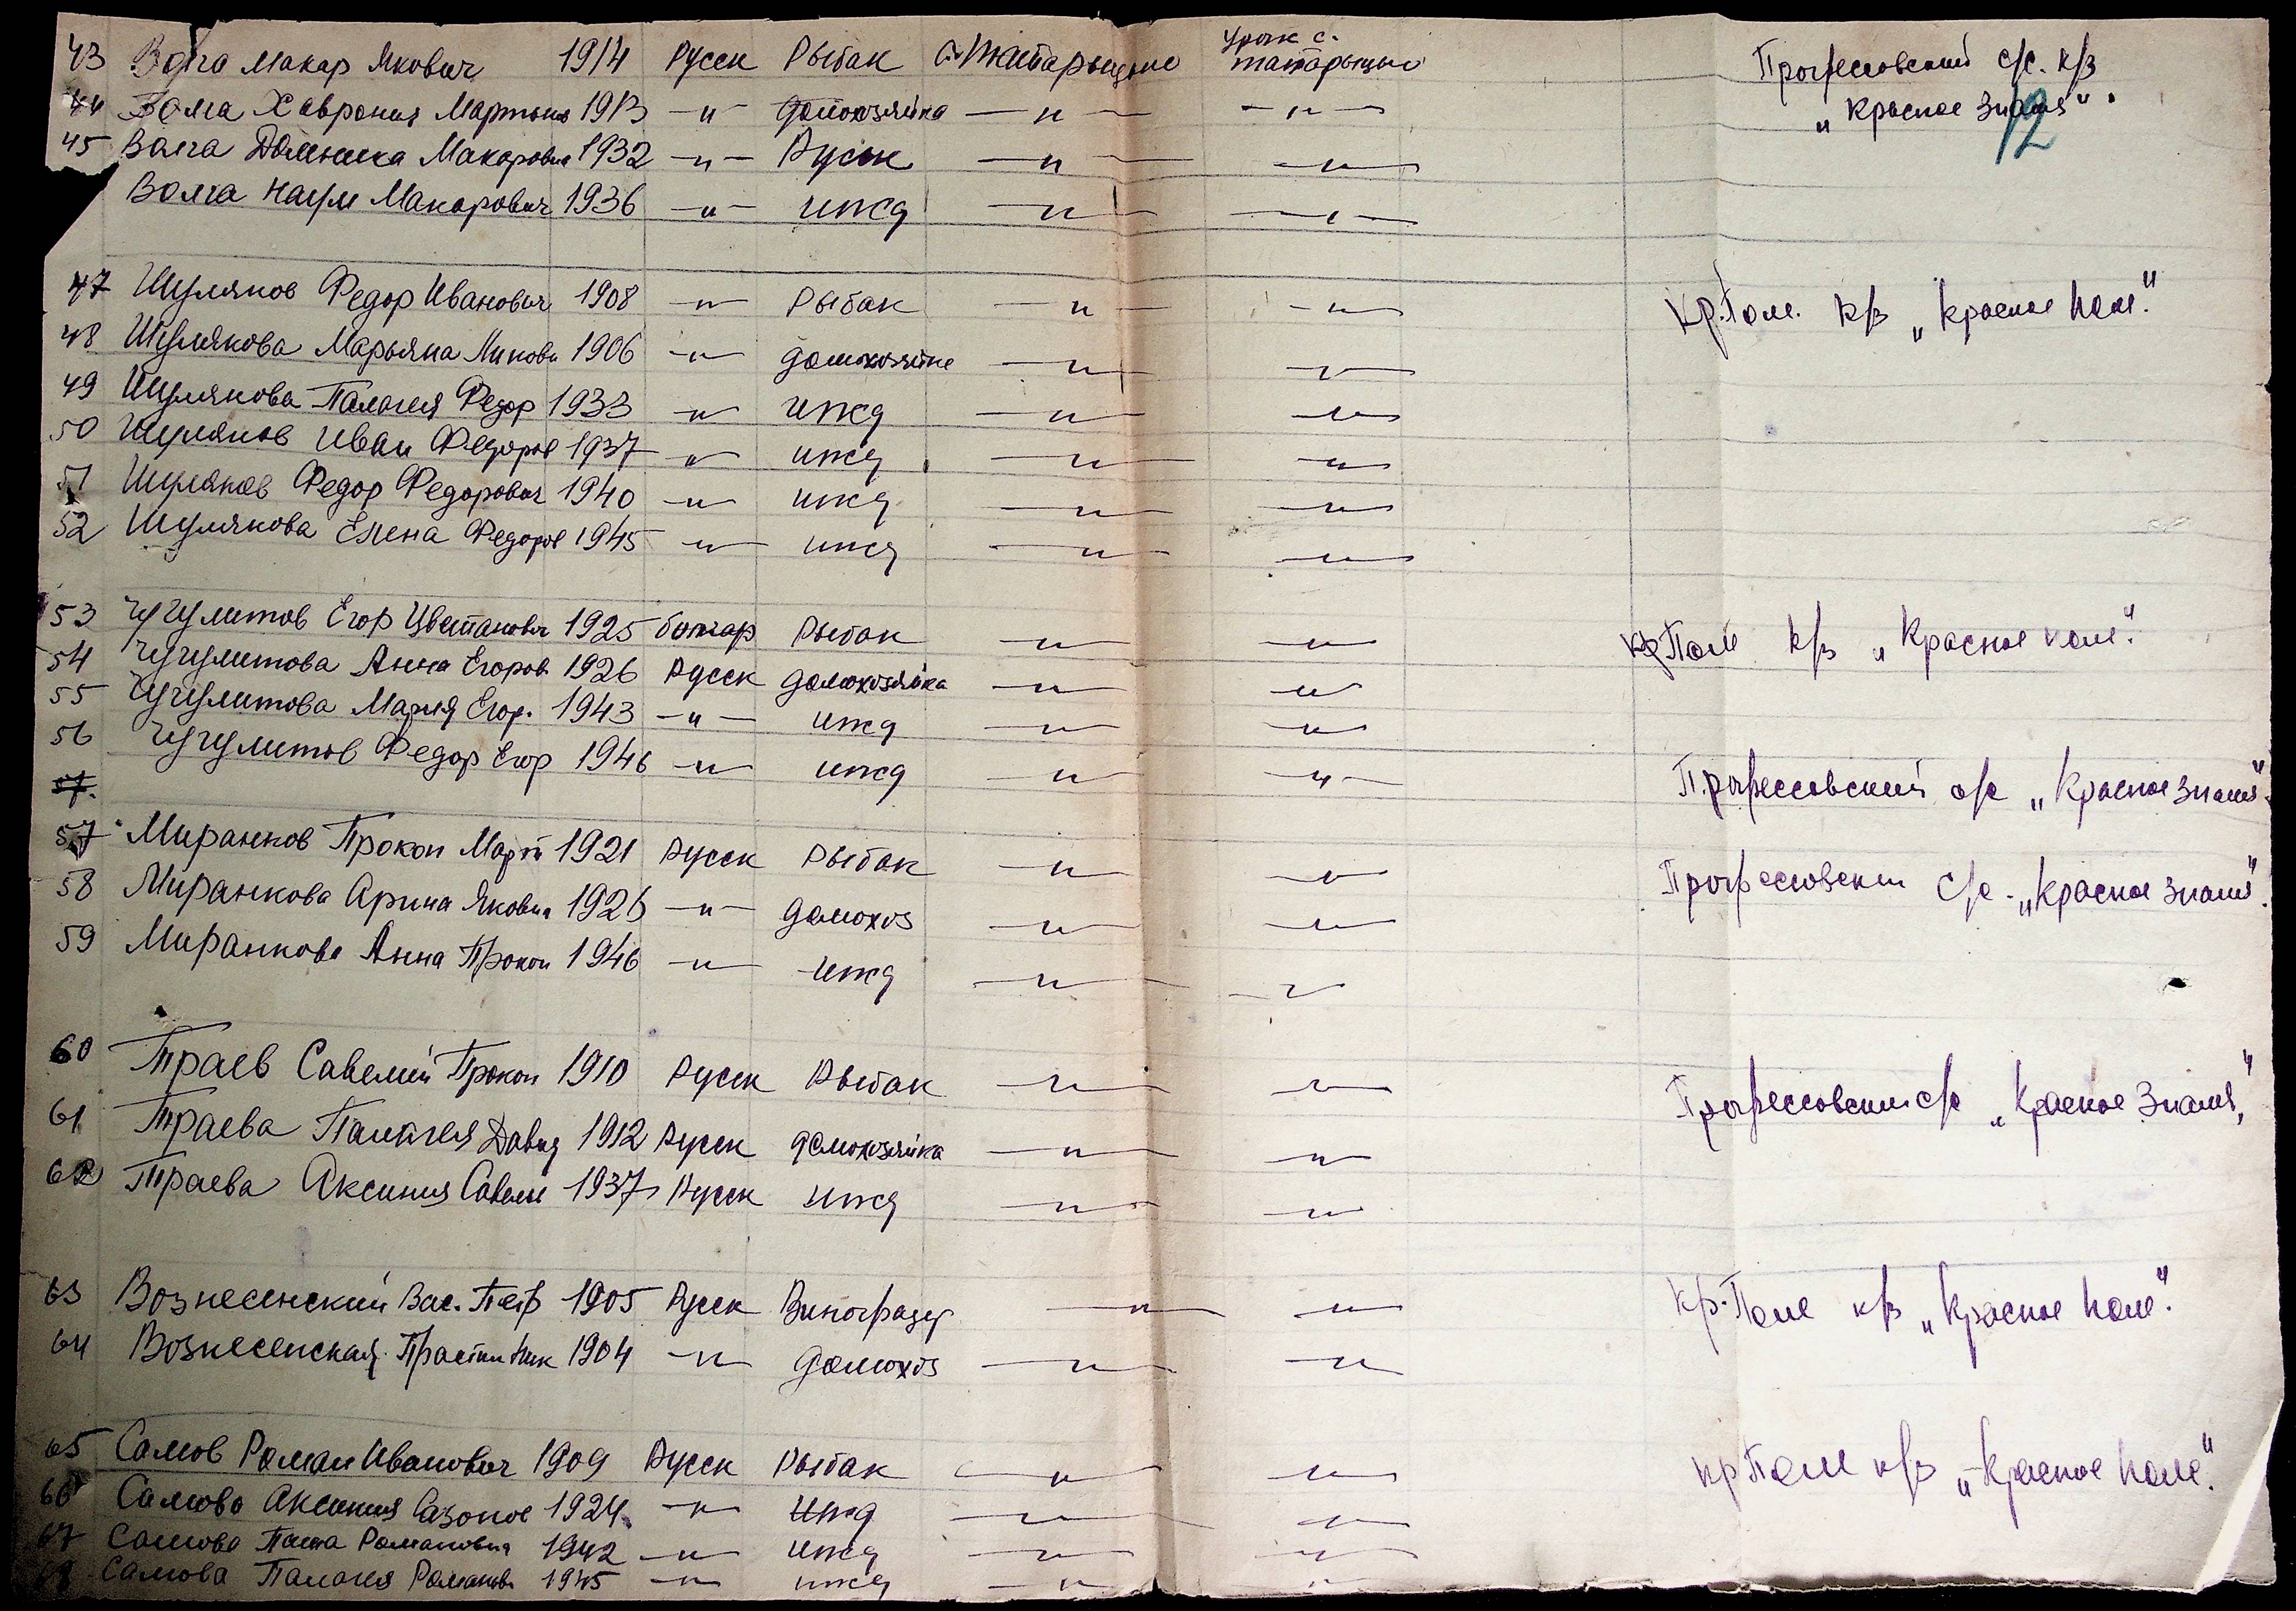 43 Волга Макар Якович 1914 Русск Рыбак с. Татарыцыно Урож с. татарыцыно Прогрессовский с/с. к/з
44 Волга Хаврония Мартын 1913 —"— домохозяйка —"— —"— "Красное Знамя". 12
45 Волга Домника Макаровна 1932 —"— Русск —"— —"—
Волга Наум Макарович 1936 —"— ижд —"— —"—
47 Шуляков Федор Иванович 1908 —"— Рыбак —"— —"— Кр. Поле. к/з "Красное Поле".
48 Шулякова Марьяна 1906 —"— домохозяйке —"— —"—
49 Шулякова Палагея Федор 1933 —"— ижд —"— —"—
50 Шуляков Иван Федоров 1937 —"— ижд —"— —"—
51 Шуляков Федор Федорович 1940 —"— ижд —"— —"—
52 Шулякова Елена Федоров 1945 —"— ижд —"— —"—
53 Чугулитов Егор Цветанович 1925 болгар Рыбак —"— —"— Кр Поле к/з "Красное поле".
54 Чугулитова Анна Егоров. 1926 Русск домохозяйка —"— —"—
55 Чугулитова Мария Егор. 1943 —"— ижд —"— —"—
56 Чугулитов Федор Егор 1946 —"— ижд —"— —"— Прогрессовский с/с "Красное Знамя".
57.
57 Миранков Прокоп Март 1921 Русск Рыбак —"— —"— Прогрессовски с/с - "Красное Знамя".
58 Миранкова Арина Яковна 1926 —"— домохоз —"— —"—
59 Миранкова Анна Прокоп 1946 —"— ижд —"— —"—
60 Траев Савелий Прокоп 1910 Русск Рыбак —"— —"— Прогрессовски с/с "Красное Знамя"
61 Траева Палагея Давид 1912 Русск домохозяйка —"— —"—
62 Траева Аксиния Савел 1937 Русск ижд —"— —"—
63 Вознесенский Вас. Петр 1905 Русск Виноградар —"— —"— Кр. Поле к/з "Красное Поле".
64 Вознесенская Ник 1904 —"— домохоз —"— —"—
65 Самов Роман Иванович 1909 Русск Рыбак —"— —"— Кр Поле к/з "Красное Поле".
66 Самова Аксиния Сазонов 1924 —"— ижд —"— —"—
67 Самова Паша Романовна 1942 —"— ижд —"— —"—
68 Самова Палагея Романов 1945 —"— ижд —"— —"—